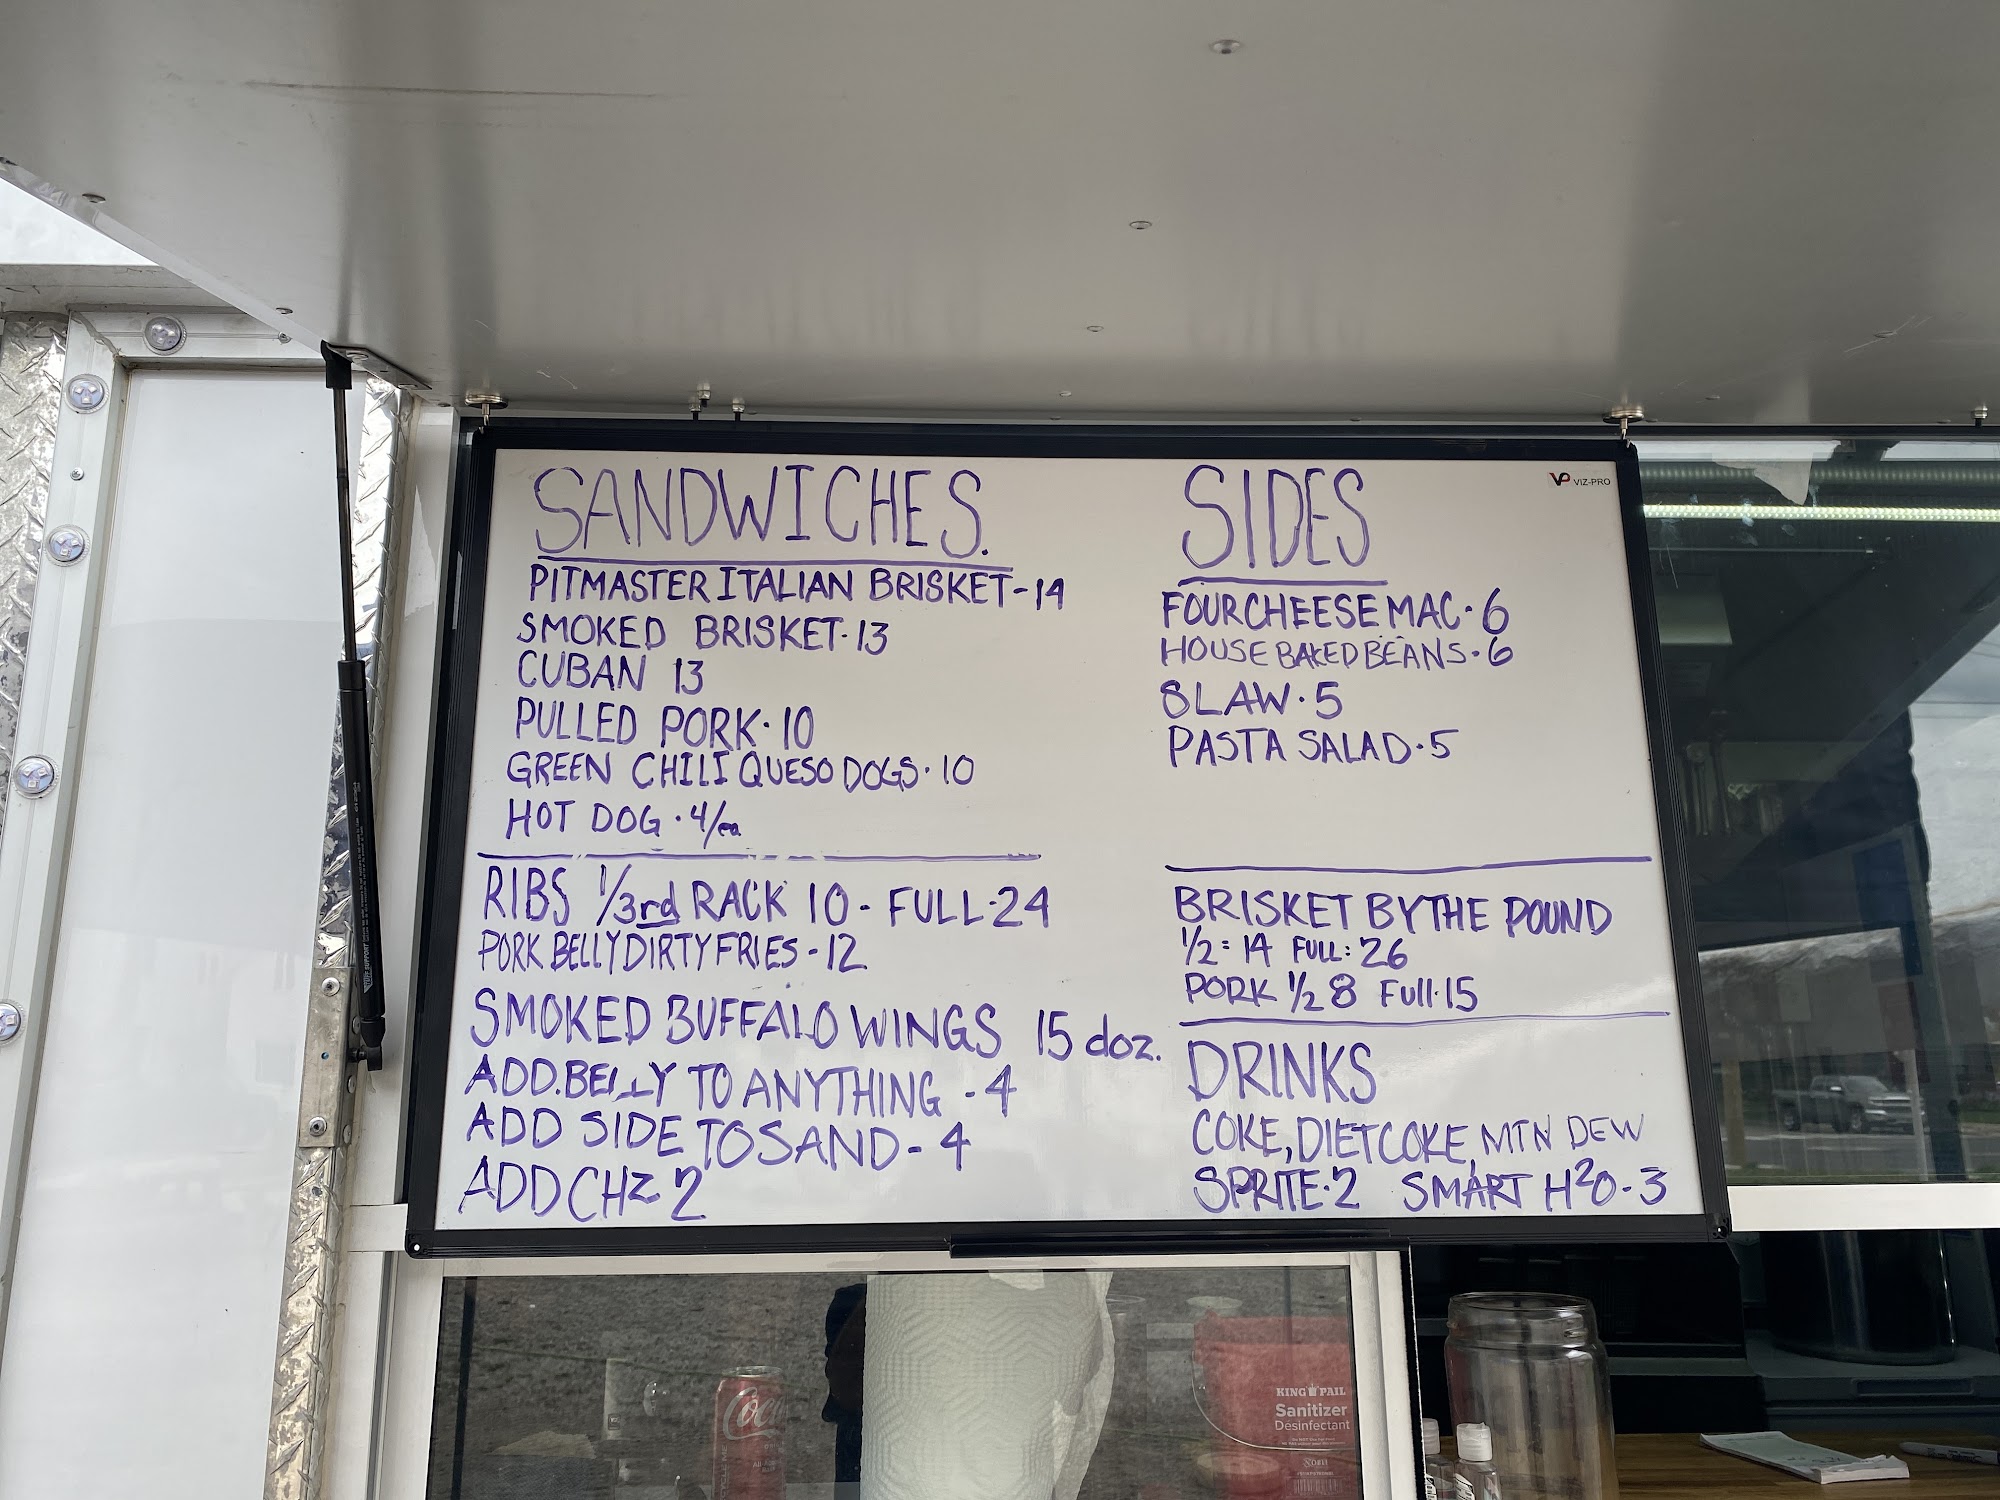 SANDWICHES.
PITMASTER ITALIAN BRISKET-14
SMOKED BRISKET·13
CUBAN 13
PULLED PORK·10
GREEN CHILI QUESO DOGS·10
HOT DOG·4/ea
RIBS 1/3rd RACK 10- FULL·24
PORK BELLY DIRTY FRIES-12
SMOKED BUFFALO WINGS 15 doz.
ADD.BELLY TO ANYTHING -4
ADD SIDE TO SAND-4
ADD CHZ 2
VP VIZ-PRO
SIDES
FOUR CHEESE MAC·6
HOUSE BAKED BEANS·6
SLAW·5
PASTA SALAD·5
BRISKET BY THE POUND
1/2=14 FULL:26
PORK 1/2 8 Full·15
DRINKS
COKE, DIET COKE, MTN DEW
SPRITE·2 SMART H²O-3
Coca
KING PAIL
Sanitizer
Desinfectant